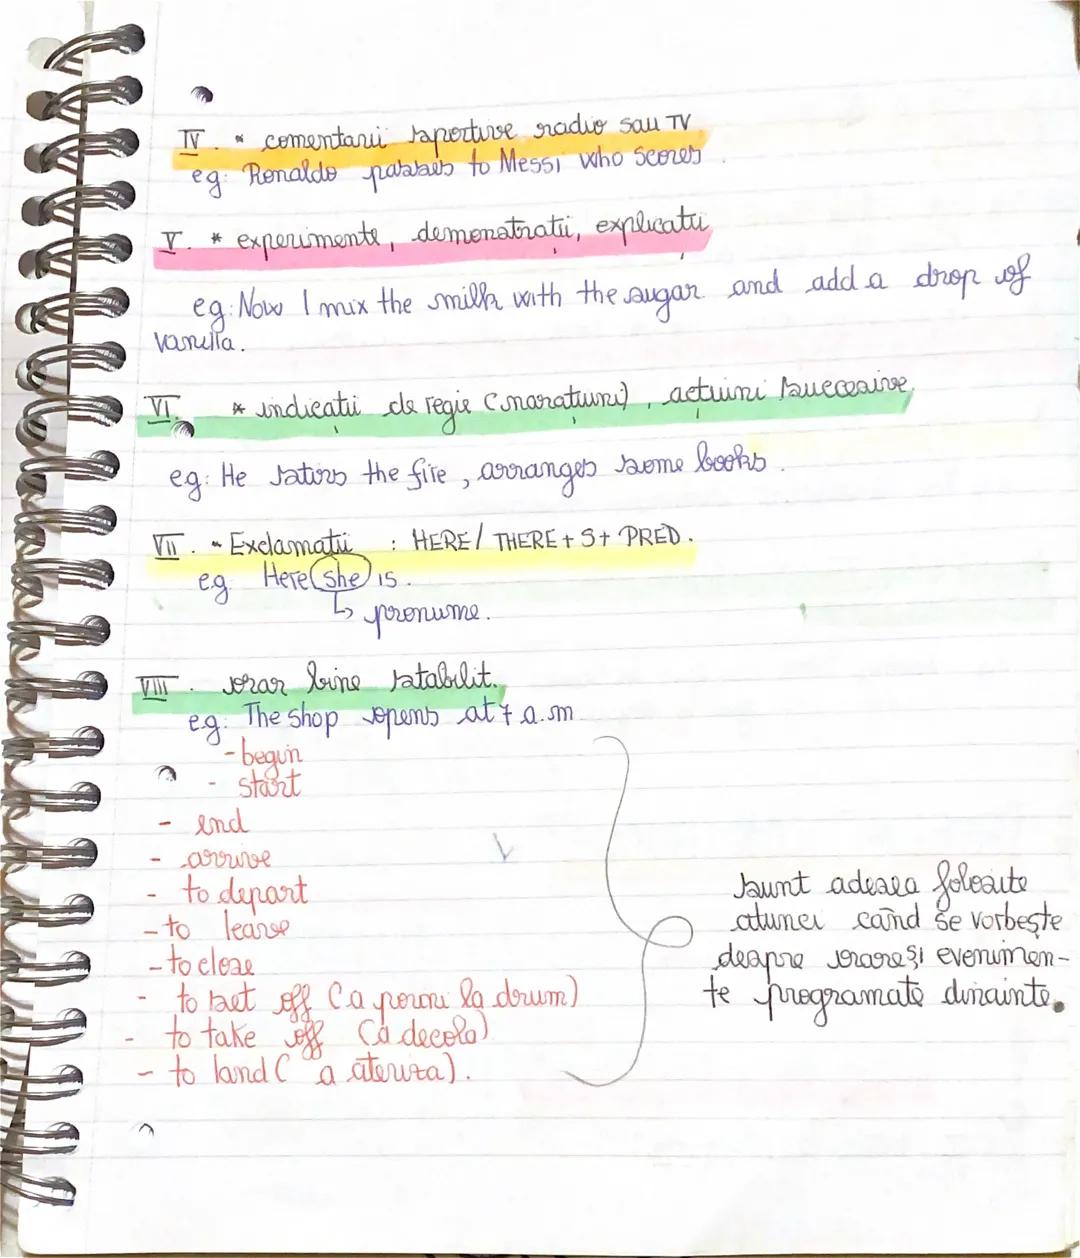 IV. * comentarii sportive radio sau TV
eg: Ronaldo passes to Messi who scores.
V. * experimente, demonstrații, explicații
eg: Now I mix the milk with the sugar and add a drop of
vanilla.
VI. * indicații de regie (narațiuni), acțiuni succesive.
eg: He stirs the fire, arranges some books.
VII. * Exclamatii : HERE/ THERE + S + PRED.
eg. Here she is.
↳ pronume.
VIII. orar bine stabilit.
e.g: The shop opens at 7 a.m
- begin
- start
- end
- arrive
- to depart
- to leave
- to close
- to set off (a porni la drum)
- to take off (a decola)
- to land ( a ateriza).
sunt adesea folosite
atunci când se vorbește
despre orare și evenimen-
te programate dinainte.